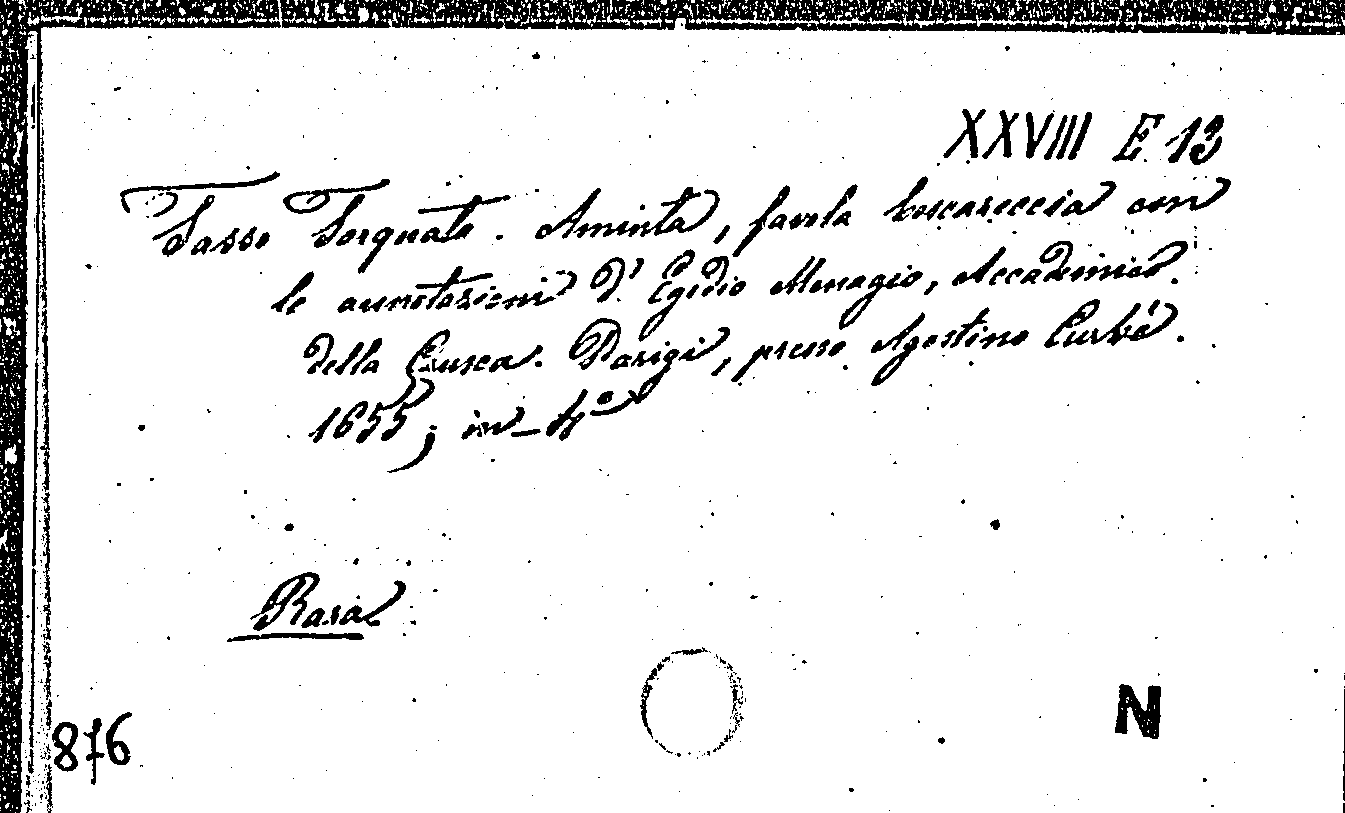 XXVIII E 13
Tasso Torquato. Aminta, favola boscareccia con
le annotazioni d' Egidio Menagio, Accademico
della Crusca. Parigi, presso Agostino Curbé.
1655; in-4º
Rara
N
876